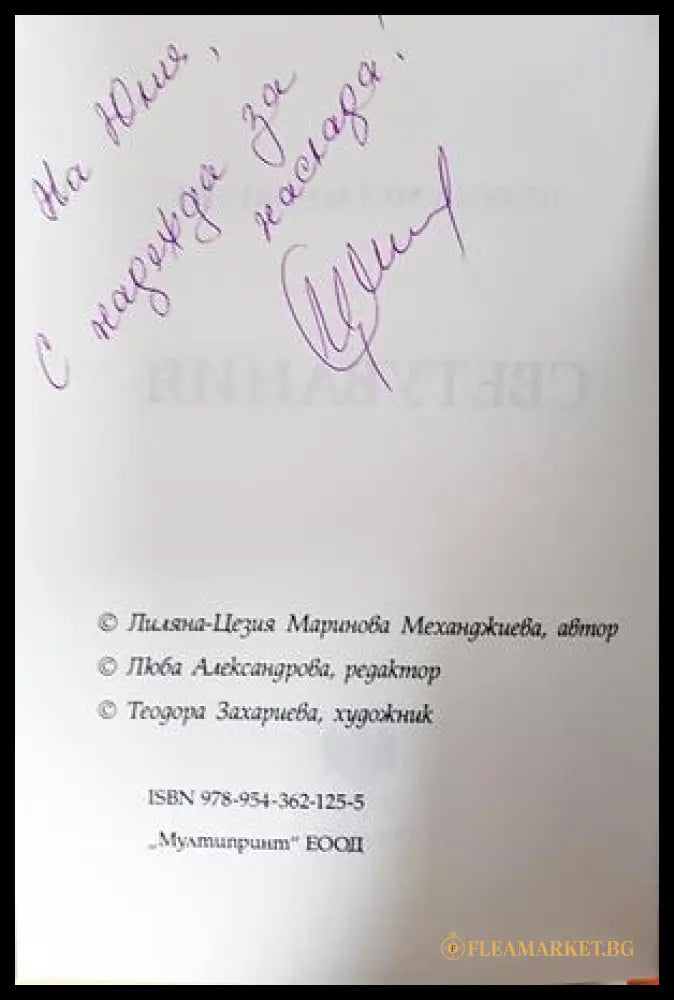 На Юлия,
С надежда за
наслада!
СВЕТУВАНИЯ
© Лиляна-Цезия Маринова Механджиева, автор
© Люба Александрова, редактор
© Теодора Захариева, художник
ISBN 978-954-362-125-5
„Мултипринт“ ЕООД
FLEAMARKET.BG